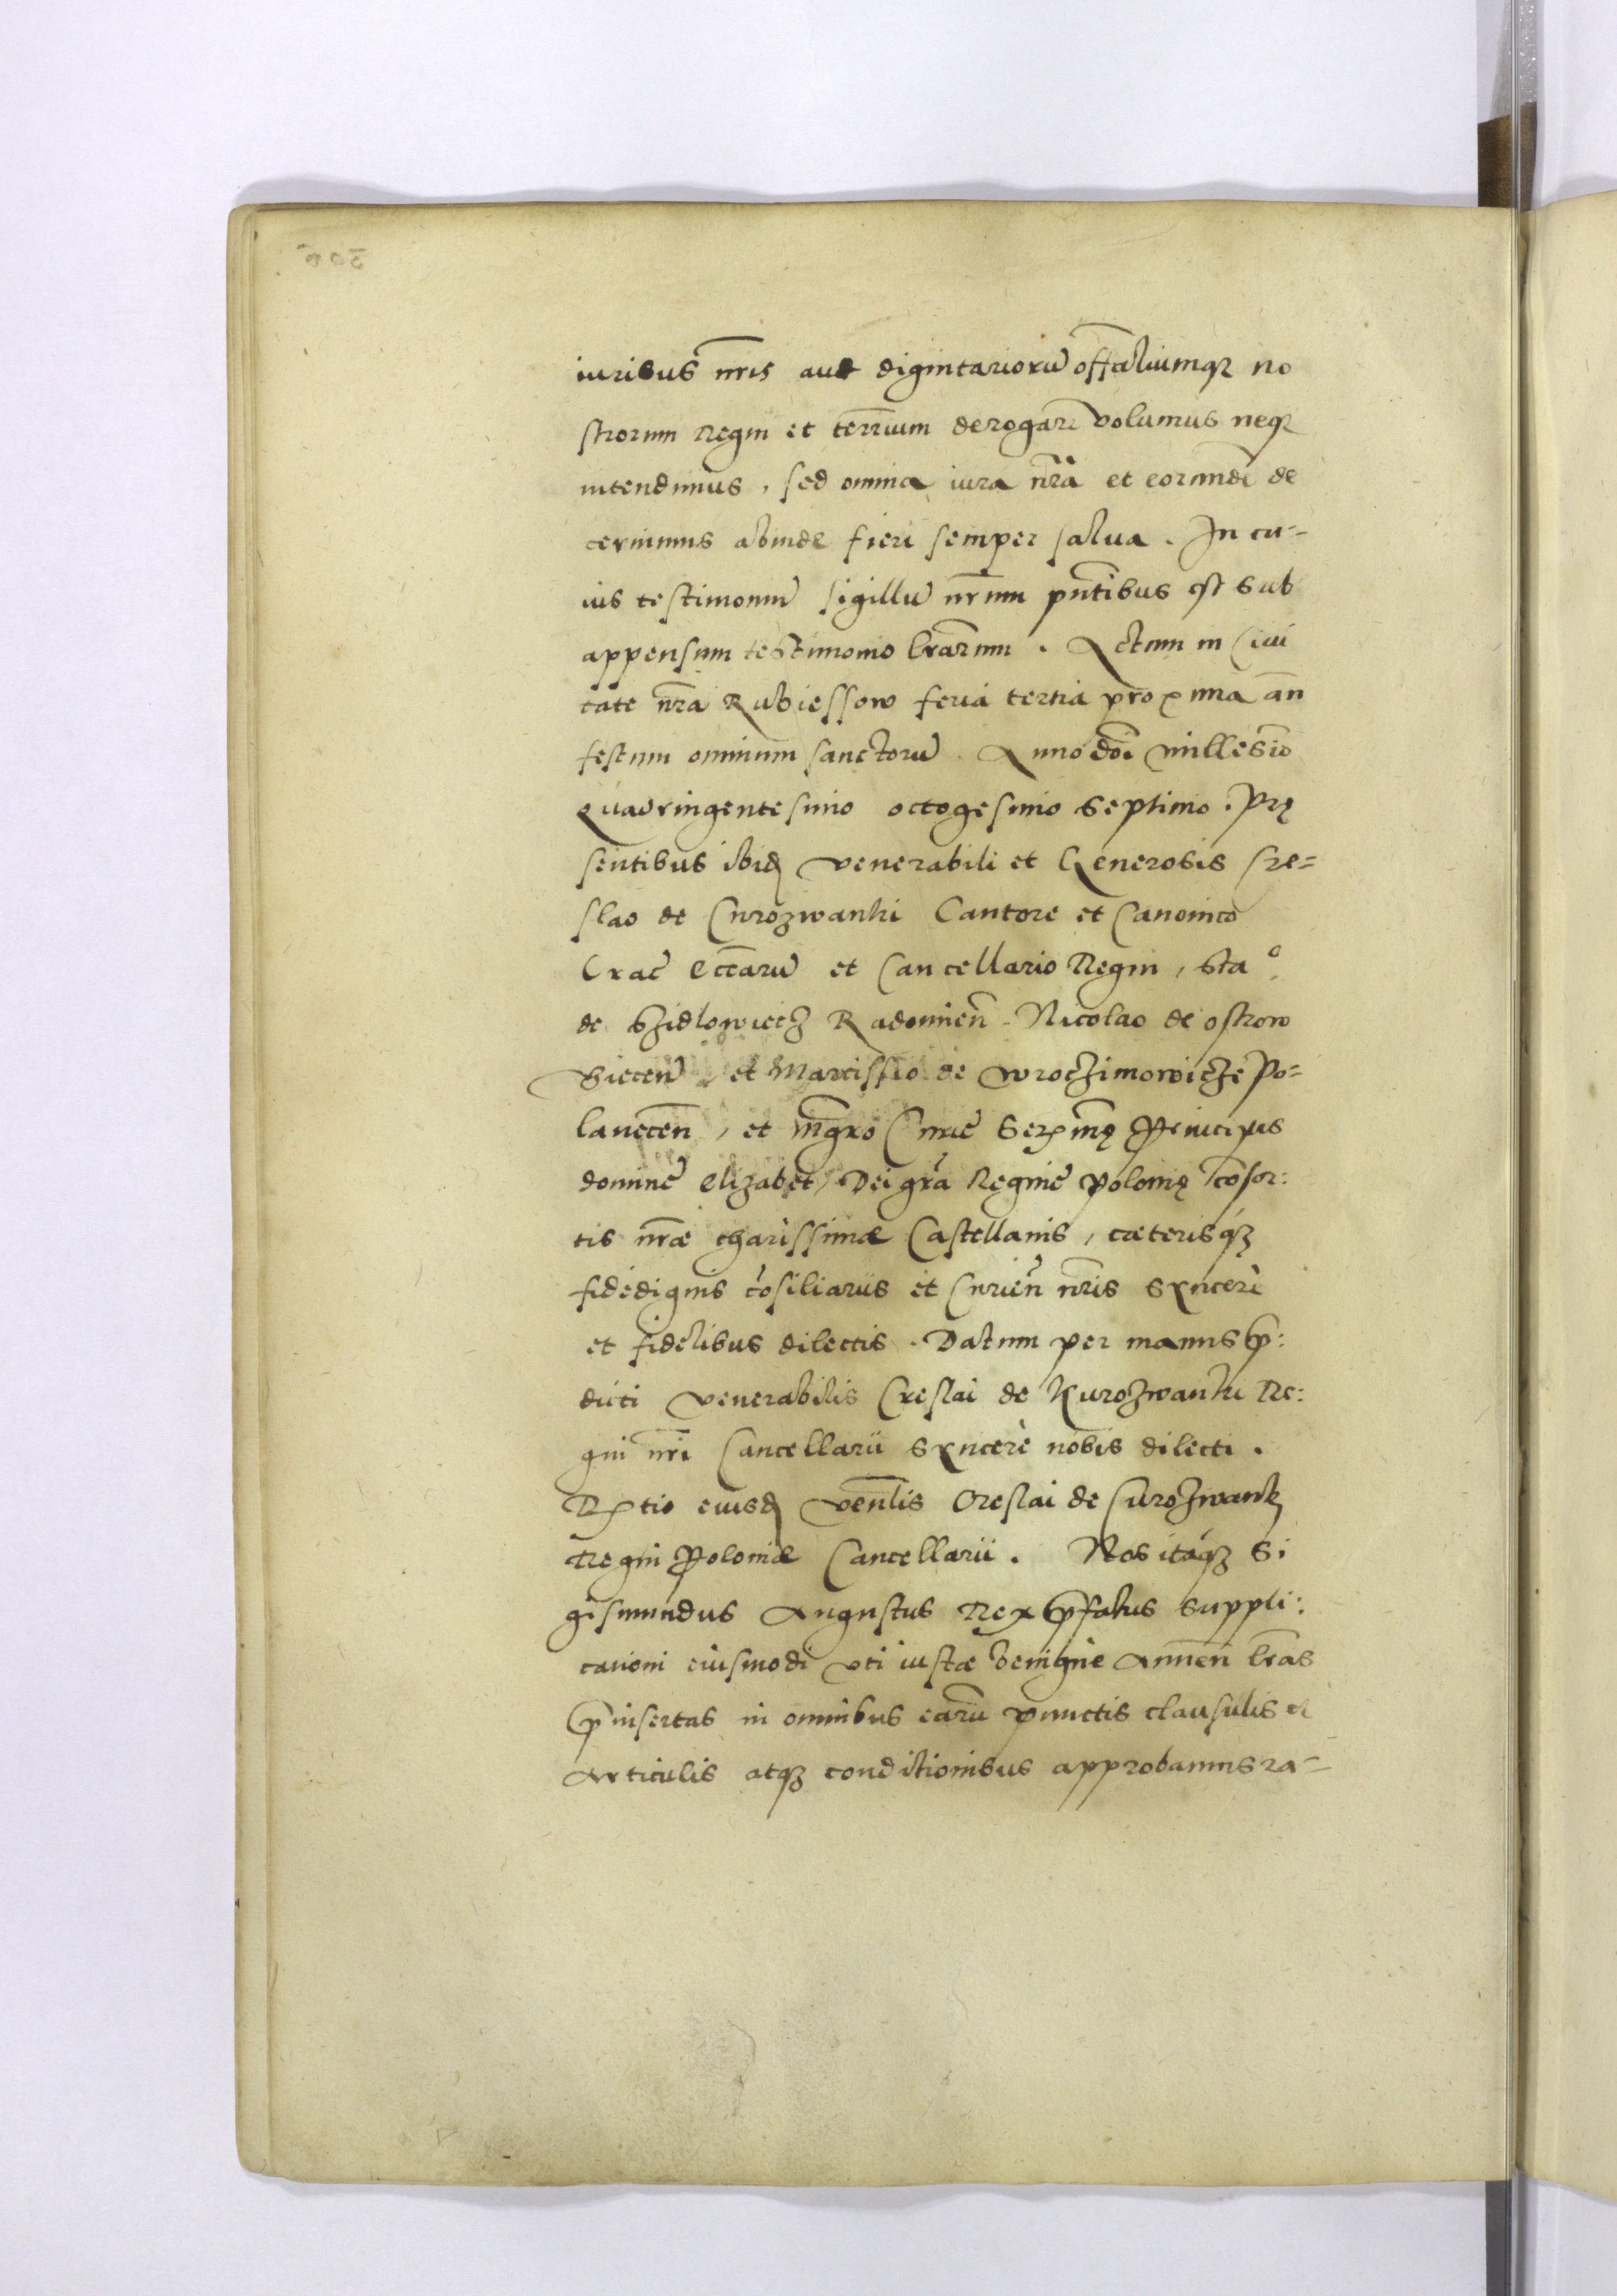 iuribus nr̃is aut dignitariorũ offaliumqꝫ no
strorum Regni et terrium derogare volumus neqꝫ
intendimus, sed omnia iura nr̃a et eorumdẽ de
cernimus abinde fieri semper salua. In cu-
ius testimoniũ sigillũ nr̃um pñtibus est sub
appensum testimonio lrarum. Actum in Ciui
tate nr̃a Rubiessow feria tertia proxima añ
festum omnium sanctorũ. Anno doi millesio
quadringentesimo octogesimo septimo. Prę
sentibus ibidꝫ venerabili et Generosis Cre-
slao de Curozwanki Cantore et Canonico
Crac̃ Ecc̃arũ et Cancellario Regni, Stao
de Szidlowiecz Radomien̄. Nicolao de ostrow
Viecen̄ et Marcissio de wroczimowicze Po-
lanecen̄, et mgr̃o Curie Serm̃ę Principis
domine Elizabet Dei gr̃a Regine Polonię cõsor:
tis nr̃æ charissimæ Castellanis, cæterisqꝫ
fidedignis cõsiliariis et Curien̄ nr̃is Syncerè
et fidelibus dilectis. Datum per manus p̃:
dicti venerabilis Creslai de Kurozwanki Re:
gni nr̃i Cancellarii syncerè nobis dilecti.
Rꝑtio eiusdꝫ ven̄lis Creslai de Curozwankꝫ
Regni Poloniæ Cancellarii. Nos itaqꝫ Si
gismundus Augustus Rex p̃fatus suppli:
cationi eiusmodi vti iustæ benignè Annuen̄ lr̃as
p̃insertas in omnibus earũ punctis clausulis et
articulis atqꝫ conditionibus approbamus ra-